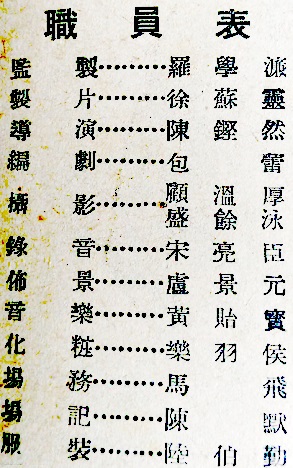 職員表
監製………羅學濂
製片………徐蘇靈
導演………陳鏗然
編劇………包蕾
攝影………顧溫厚
盛餘泳
錄音………宋亮臣
佈景………盧景元
音樂………黃貽鈞
化粧………樂羽侯
場務………馬飛
場記………陳默
服裝………陸伯勤